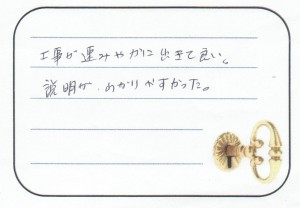 工事が速みやかに出きて良い。
説明が、わかりやすかった。